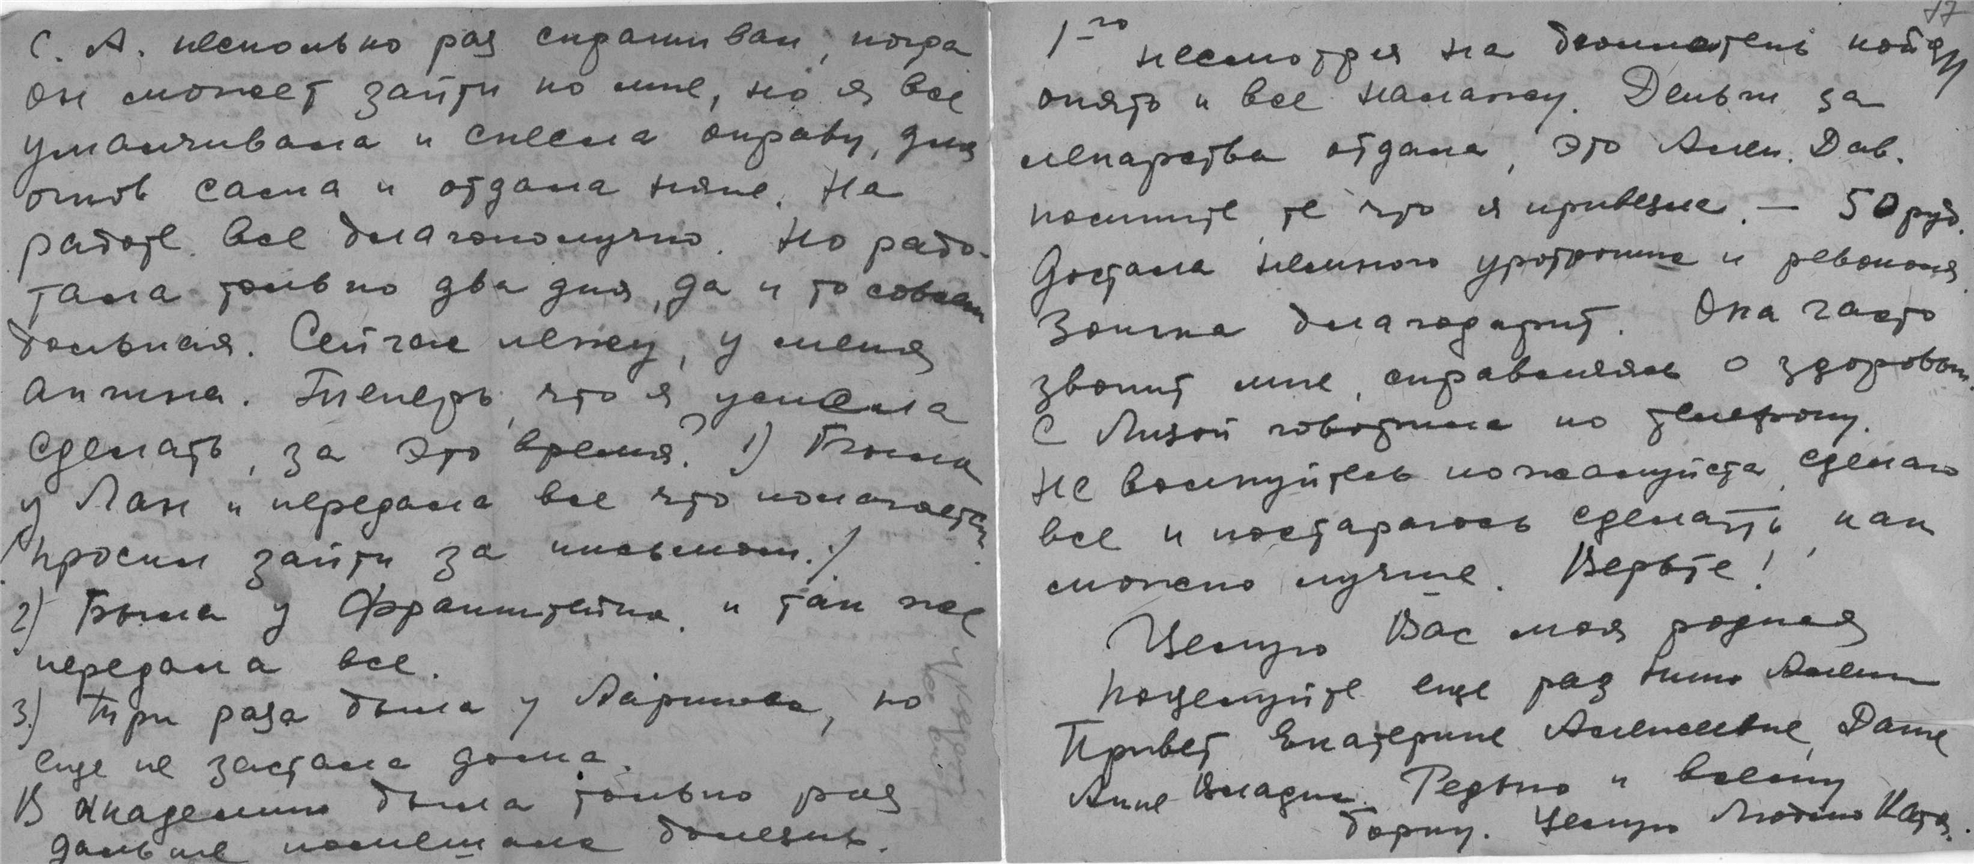 С. А. несколько раз спрашивал, когда
он может зайти ко мне, но я все
умалчивала и снесла оправу, для
очков сама и отдала няне. На
работе все благополучно. Но рабо-
тала только два дня, да и то совсем
больная. Сейчас лежу, у меня
ангина. Теперь, что я успела
сделать, за это время? 1) Была
у Лан и передала все что полагается
(просил зайти за письмом.)
2) Была у Франштейна и так же
передала все.
3) Три раза была у Ларинова, но
еще не застала дома.
В Академии была только раз
дальше помешала болезнь.
17
1-го несмотря на бюллетень пойду
опять и все налажу. Деньги за
лекарства отдала, это Алек. Дав.
помните, те что я привезла. — 50 руб.
Достала немного уротропина и ревеконя
Зоечка благодарит. Она часто
звонит мне, справляясь о здоровьи.
С Лизой говорила по телефону.
Не волнуйтесь пожалуйста, сделаю
все и постараюсь сделать, как
можно лучше. Верьте!
Целую Вас моя родная
поцелуйте еще раз Алекс
Привет Екатерине Алексеевне, Даше
Анне Владим. Редько и всему
борту. Целую Люблю Катя.